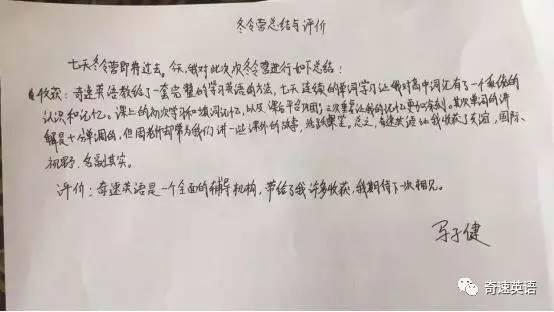 冬令营总结与评价
七天冬令营即将过去。今天,我对此次冬令营进行如下总结:
收获:奇速英语教给了一套完整的学习英语的方法,七天连续的单词学习让我对高中词汇有了一个系统的
认识和记忆。课上的初次学习和填词记忆,以及课后平台巩固三次重复让我的记忆更加有利。其次单词的讲
解是十分单调的,但周老师却常为我们讲一些课外的故事,活跃课堂。总之,奇速英语让我收获了英语,国际
视野,名副其实。
评价:奇速英语是一个全面的辅导机构,带给了我许多收获,我期待下一次相见。
子健
奇速英语